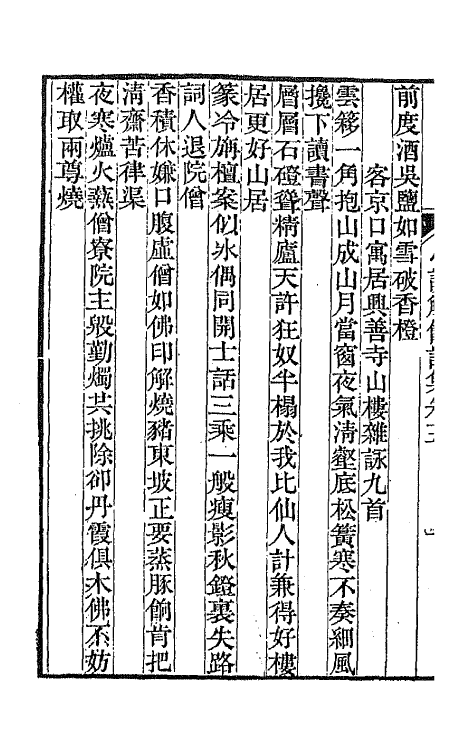 前度酒吳鹽如雪破香橙
客京口寓居興善寺山樓雜詠九首
雲移一角抱山成山月當窗夜氣淸壑底松簧寒不奏細風
攙下讀書聲
層層石磴聳精廬天許狂奴半榻於我比仙人計兼得好樓
居更好山居
篆冷旃檀案似冰偶同開士話三乘一般瘦影秋鐙裏失路
詞人退院僧
香積休嫌口腹虛僧如佛印解燒豬東坡正要蒸豚餉肯把
淸齋苦律渠
夜寒爐火爇僧寮院主殷勤燭共挑除卻丹霞俱木佛不妨
權取兩尊燒